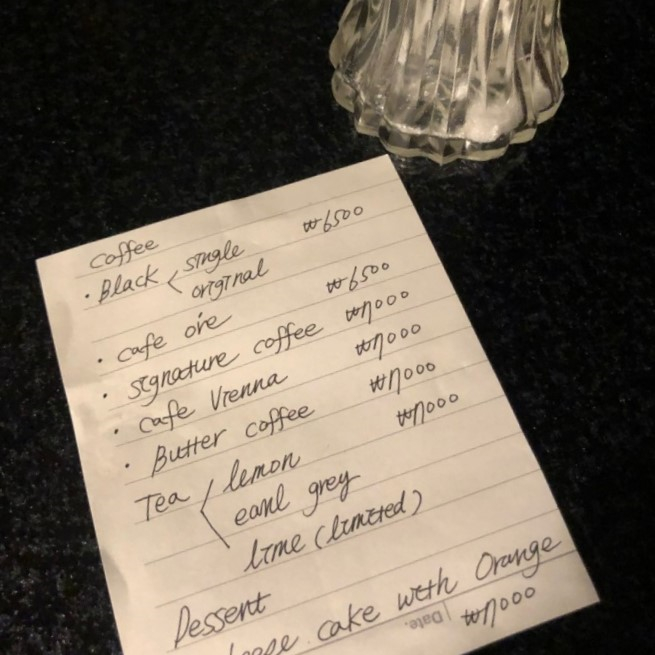 coffee
· Black < single ₩6500
original
· cafe ore ₩6500
· signature coffee ₩7000
· cafe Vienna ₩7000
· Butter coffee ₩7000
Tea < lemon ₩7000
earl grey
lime (limited)
Dessert
cake with Orange
Date. ₩7000